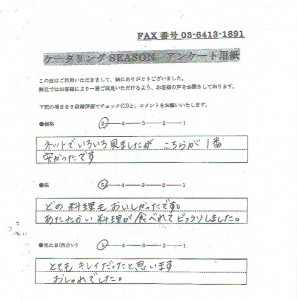 FAX 番号 03-6413-1891
ケータリング SEASON アンケート用紙
この度はご利用いただきまして、誠にありがとうございました。
弊社ではお客様により一層ご満足いただけるよう、お客様の声をお聞きしております。
下記の項目を5段階評価でチェック(○)と、コメントをお願いいたします。
●価格
5-----4-----3-----2-----1
ネットでいろいろ見ましたが こちらが1番
安かったです
●味
5-----4-----3-----2-----1
どの料理もおいしかったです。
あたたかい料理が食べれてビックリしました。
●見た目(色合い)
5-----4-----3-----2-----1
とてもキレイだったと思います
おしゃれでした。